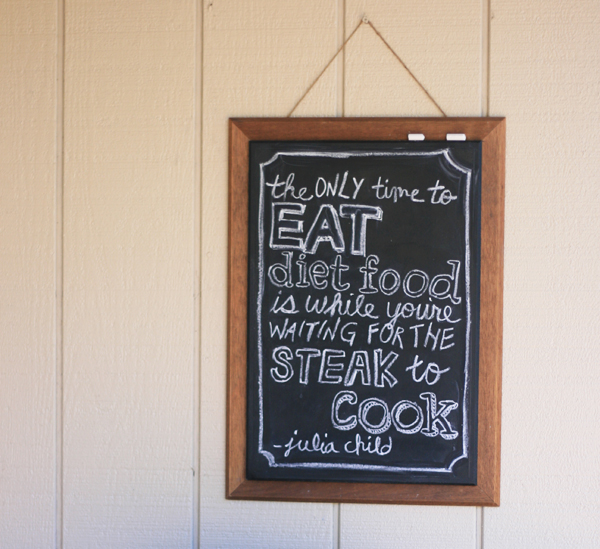 the ONLY time to
EAT
diet food
is while you're
WAITING FOR THE
STEAK to
COOK
-julia child